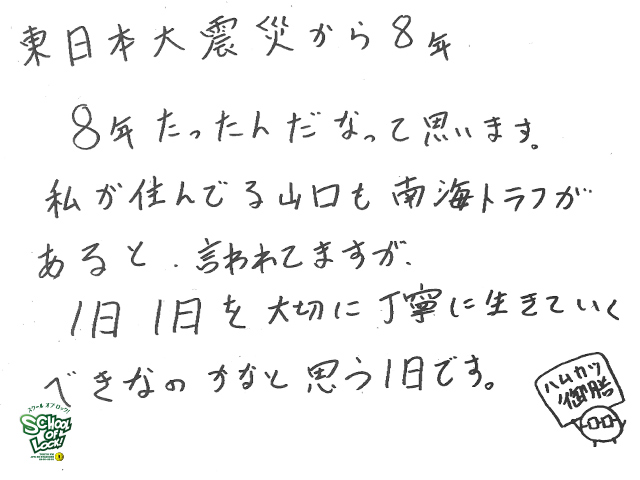 東日本大震災から8年
8年たったんだなって思います。
私が住んでる山口も南海トラフが
あると、言われてますが、
1日1日を大切に丁寧に生きていく
べきなのかなと思う1日です。
ハムカツ
御膳
スクール オブ ロック!
SCHOOL
OF
LOCK!